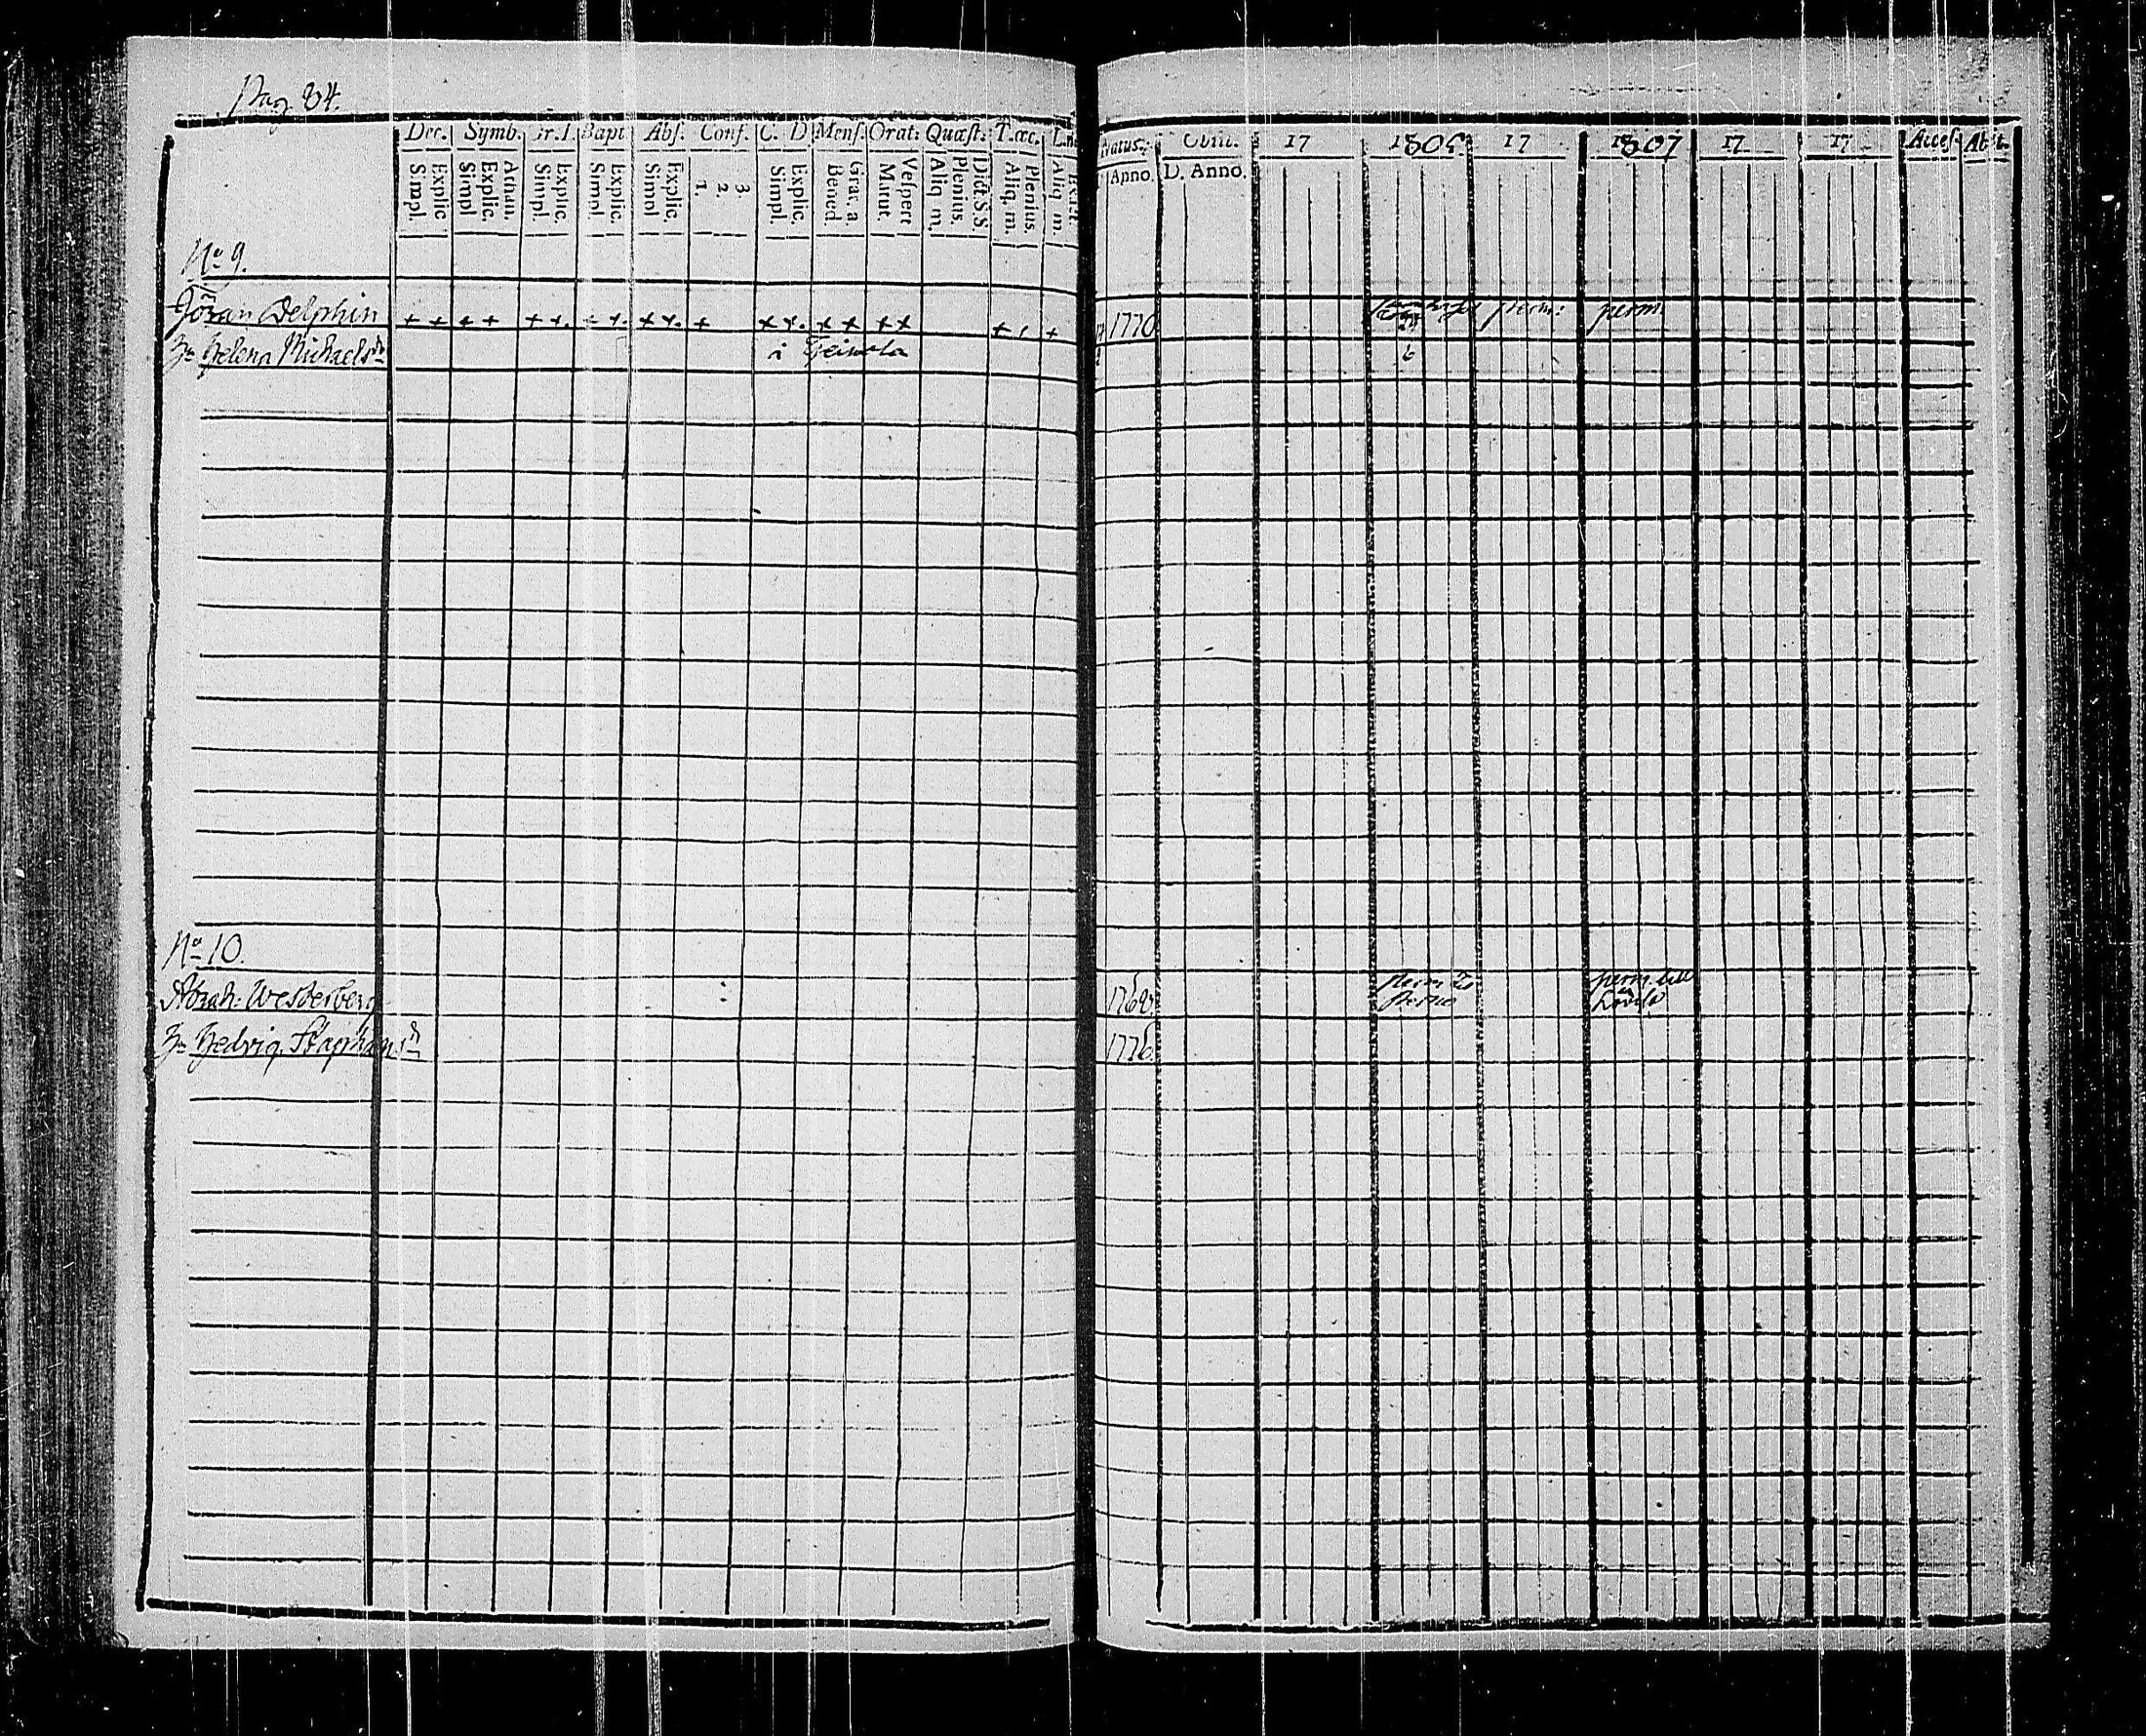 Pag 84.
Dec. Symb. Or. D. Bapt. Abs. Conf. C. D Mens. Orat: Quæst: T. œc.
Simpl. Explic. Simpl Explic. Athan. Simpl. Explic. Simpl Explic. Simpl Explic. 1. 2. 3. Simpl. Explic. Bened. Grat. a. Matut. Vespert Aliq. m. Plenius. Dict. S. S. Aliq. m. Plenius. Aliq. m.
Natus. Obiit. 17 1806 17 1807 17 17 Acces. Abit.
Anno. D. Anno.
No 9.
Jöran Delphin + + + + + + + + + + + + + + + + + + + + 1770 perm: perm.
Hu Helena Michaelsdr i Heinola 6
No 10.
Abrah: Westerberg 1768 perm perm. till
Hu Hedvig Stäphansdr 1776.